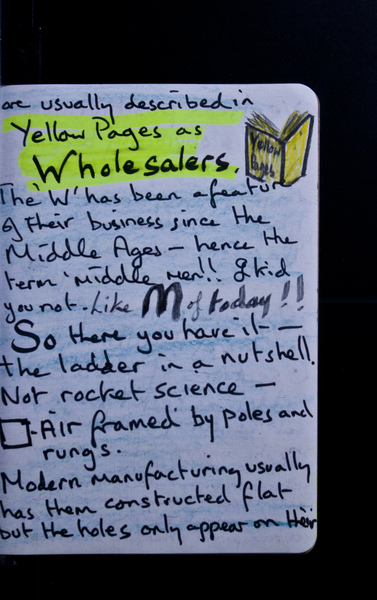 are usually described in
Yellow Pages as
Wholesalers.
Yellow
Pages
The 'W' has been a featur
of their business since the
Middle Ages – hence the
term 'middle men'!! I kid
you not. Like M of today!!
So there you have it –
the ladder in a nutshell.
Not rocket science –
- Air framed by poles and
rungs.
Modern manufacturing usually
has them constructed flat
but the holes only appear on their